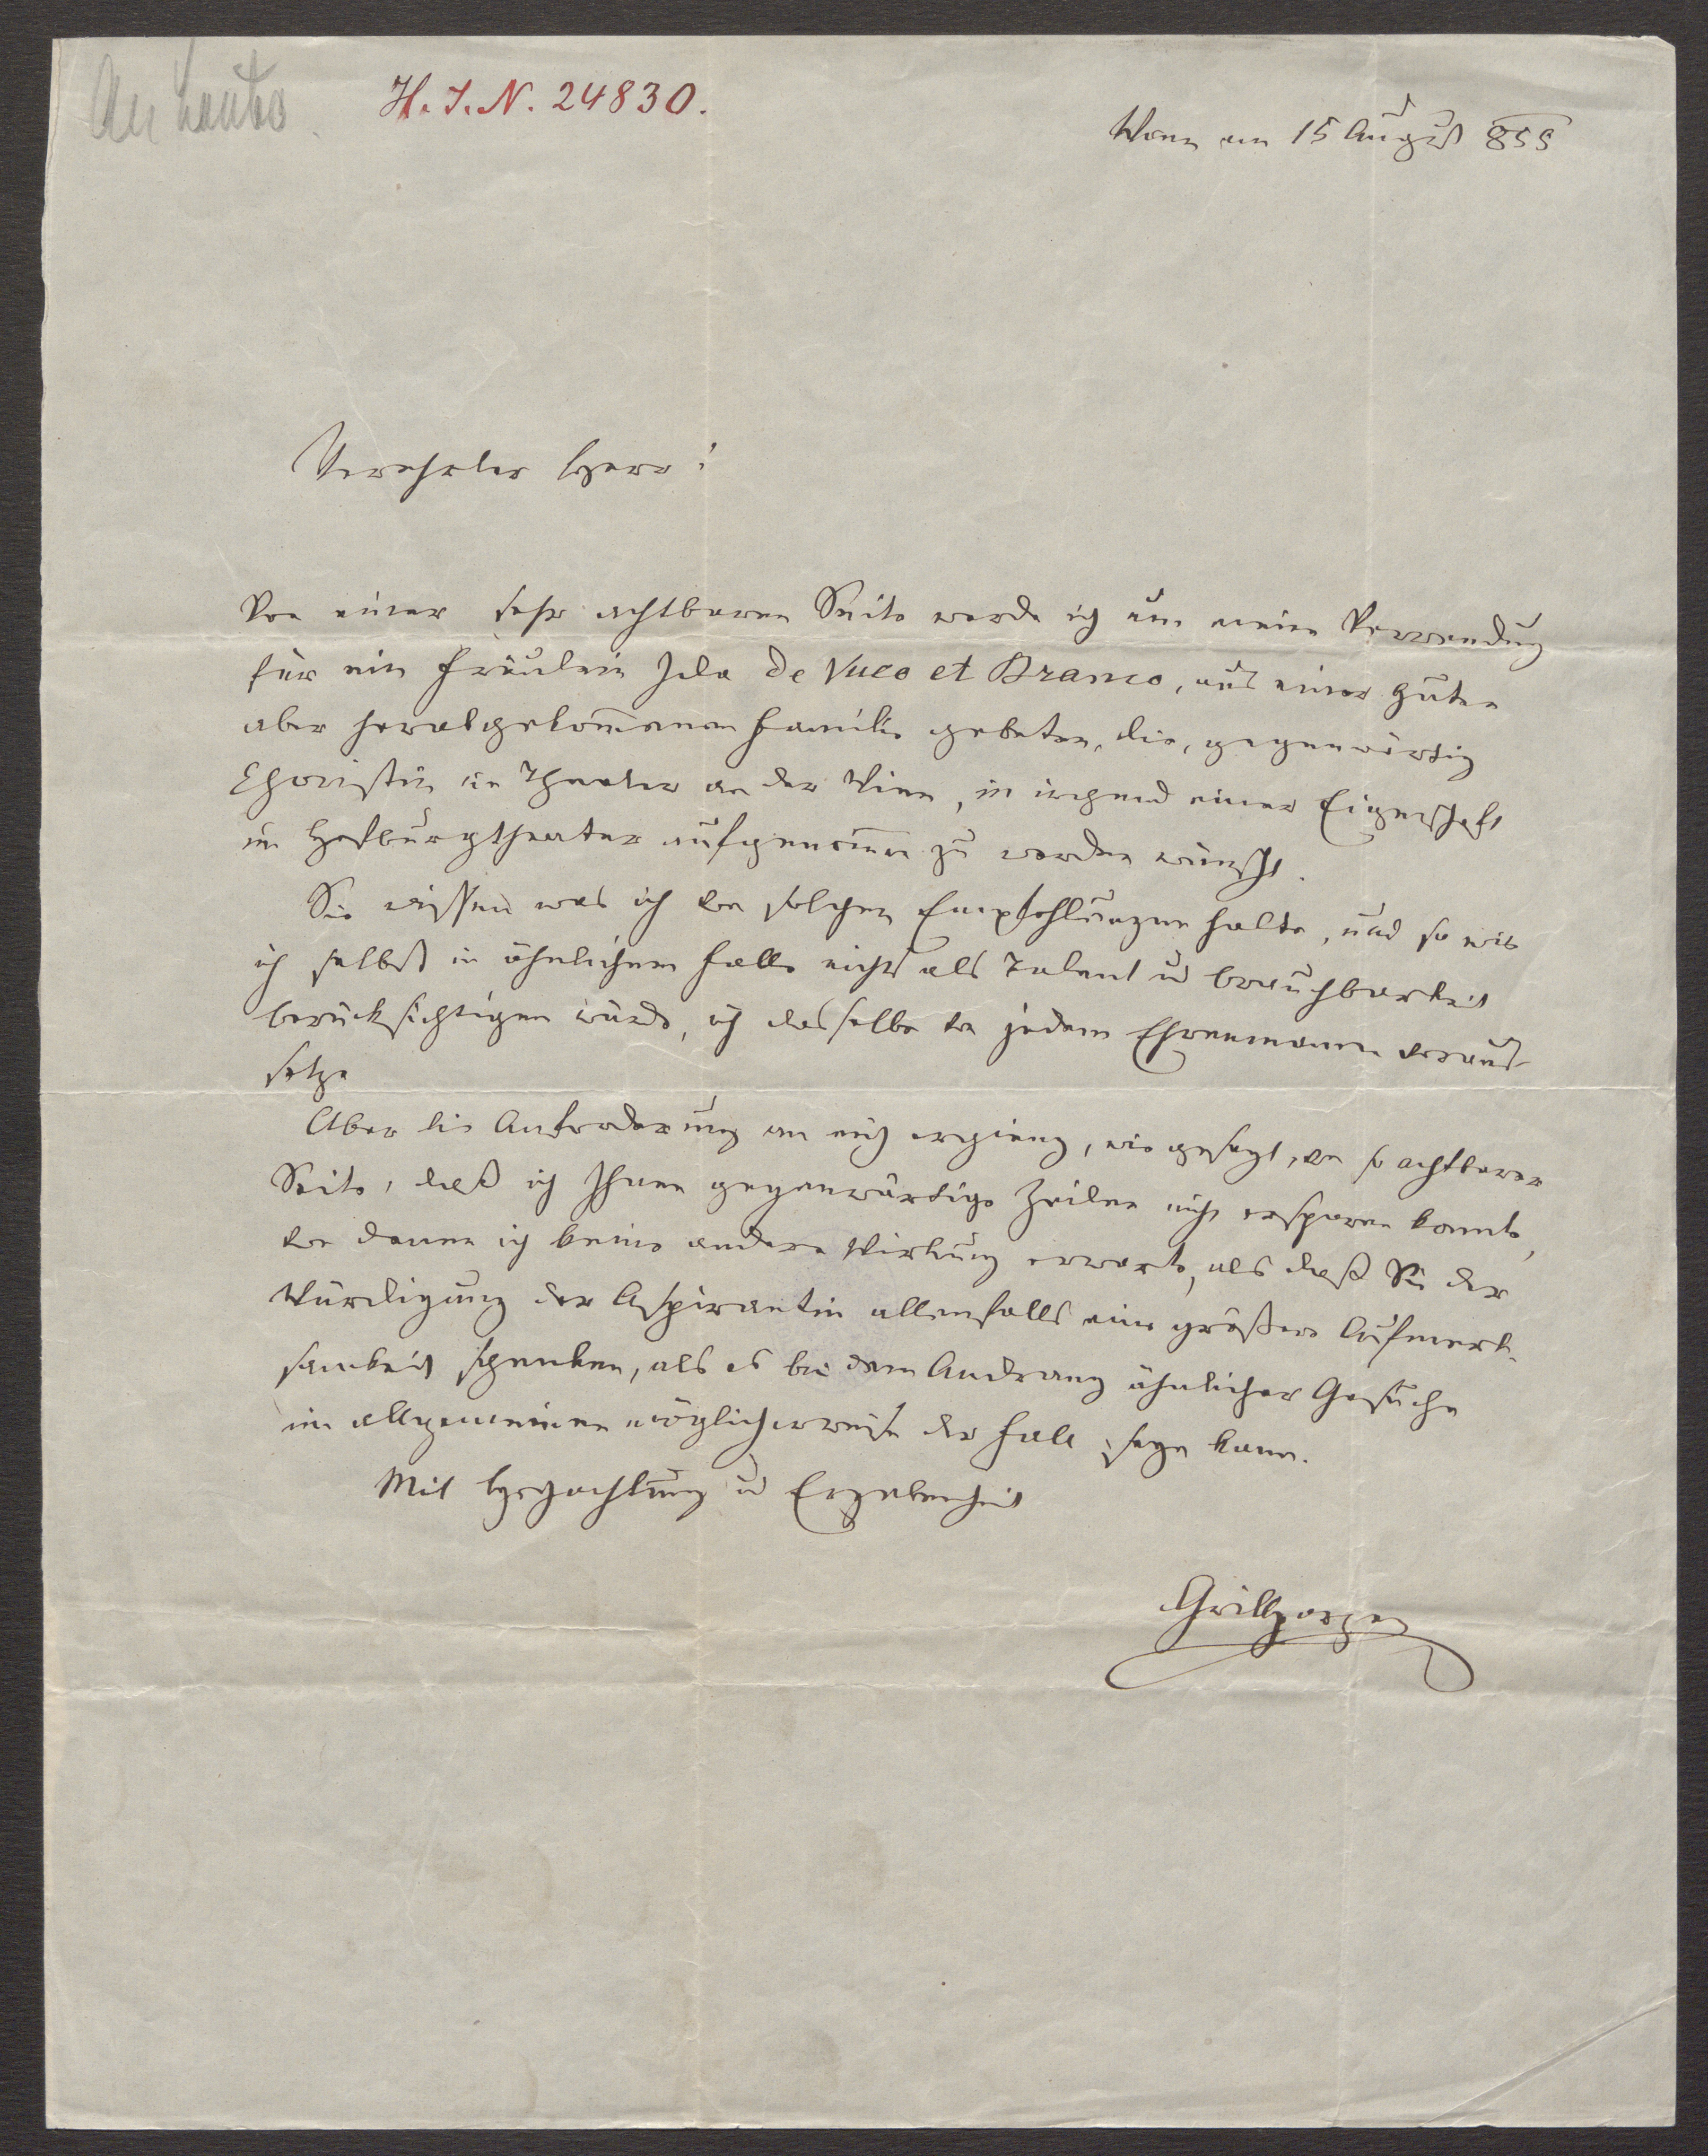 An Laube
H. I. N. 24830.
Wien am 15 August 859
Verehrter Herr!
Von einer sehr achtbaren Seite werde ich um meine Verwendung
für ein Fräulein Ida de Vuco et Branco, aus einer guten
aber herabgekom̄enen Familie gebeten, die, gegenwärtig
Choristin im Theater an der Wien, in irgend einer Eigenschaft
im Hofburgtheater aufgenom̄en zu werden wünscht.
Sie wissen was ich von solchen Empfehlungen halte, und so wie
ich selbst in ähnlichem Falle nichts als Talent u Brauchbarkeit
berücksichtigen würde, ich dasselbe von jedem Ehrenmanne voraus
setze
Aber die Anforderung an mich ergieng, wie gesagt, von so achtbarer
Seite, daß ich Ihnen gegenwärtige Zeilen nicht ersparen konnte,
von denen ich keine andere Wirkung erwarte, als daß Sie der
Würdigung der Aspirantin allenfalls eine größere Aufmerk-
samkeit schenken, als es bei dem Andrang ähnlicher Gesuche
im allgemeinen möglicherweise der Fall seyn kann.
Mit Hochachtung u Ergebenheit
Grillparzer